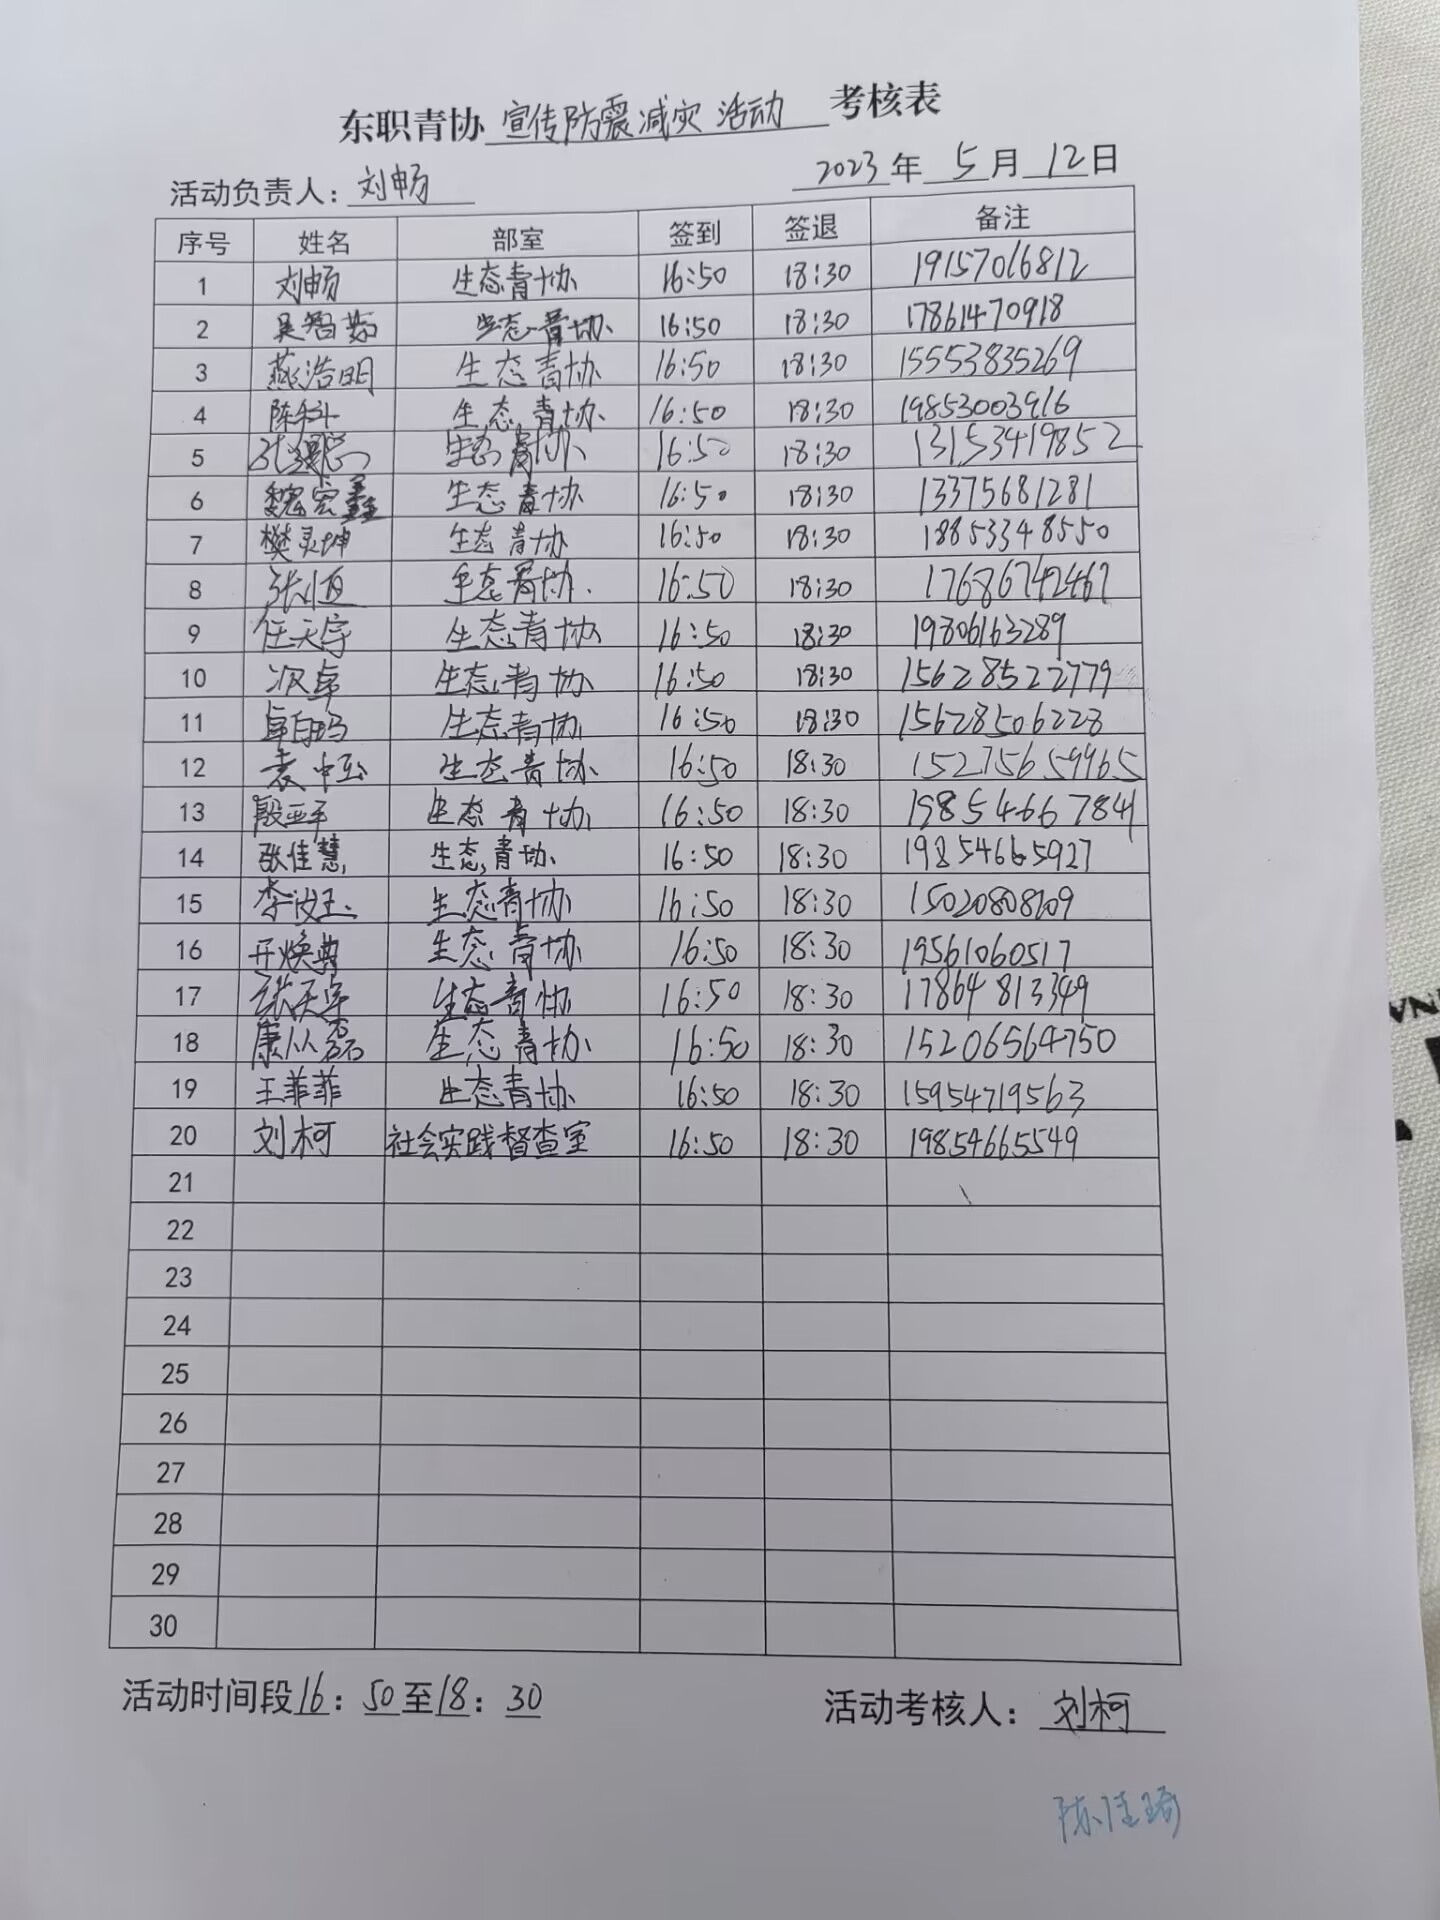 东职青协 宣传防震减灾 活动 考核表
活动负责人: 刘畅 2023 年 5 月 12 日
序号 姓名 部室 签到 签退 备注
1 刘畅 生态青协 16:50 18:30 19157016812
2 吴智 生态青协 16:50 18:30 17861470918
3 燕浩明 生态青协 16:50 18:30 15553835269
4 陈科 生态青协 16:50 18:30 19853003916
5 生态青协 16:50 18:30 13153419852
6 魏宏鑫 生态青协 16:50 18:30 13375681281
7 樊灵坤 生态青协 16:50 18:30 18853348550
8 张恒 生态青协 16:50 18:30 17686742461
9 任天宇 生态青协 16:50 18:30 19806163289
10 次卓 生态青协 16:50 18:30 15628522779
11 卓白玛 生态青协 16:50 18:30 15628506228
12 袁中玉 生态青协 16:50 18:30 15275659965
13 殷亚平 生态青协 16:50 18:30 19854667841
14 张佳慧 生态青协 16:50 18:30 19854665927
15 李汝玉 生态青协 16:50 18:30 15020808209
16 开焕典 生态青协 16:50 18:30 19561060517
17 张天宇 生态青协 16:50 18:30 17864813349
18 康从磊 生态青协 16:50 18:30 15206564750
19 王菲菲 生态青协 16:50 18:30 15954719563
20 刘柯 社会实践督查室 16:50 18:30 19854665549
21
22
23
24
25
26
27
28
29
30
活动时间段 16: 50 至 18: 30 活动考核人: 刘柯
陈佳琦